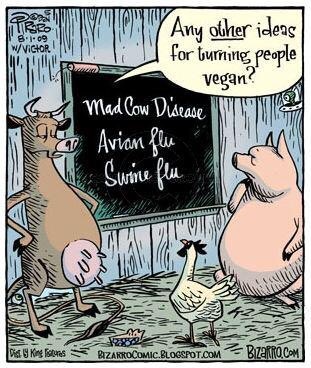 PIRARO
8-1-09
W/VICTOR
Any other ideas
for turning people
vegan?
Mad Cow Disease
Avian flu
Swine flu
Dist. by King Features
BIZARROCOMIC.BLOGSPOT.COM
BIZARRO.COM